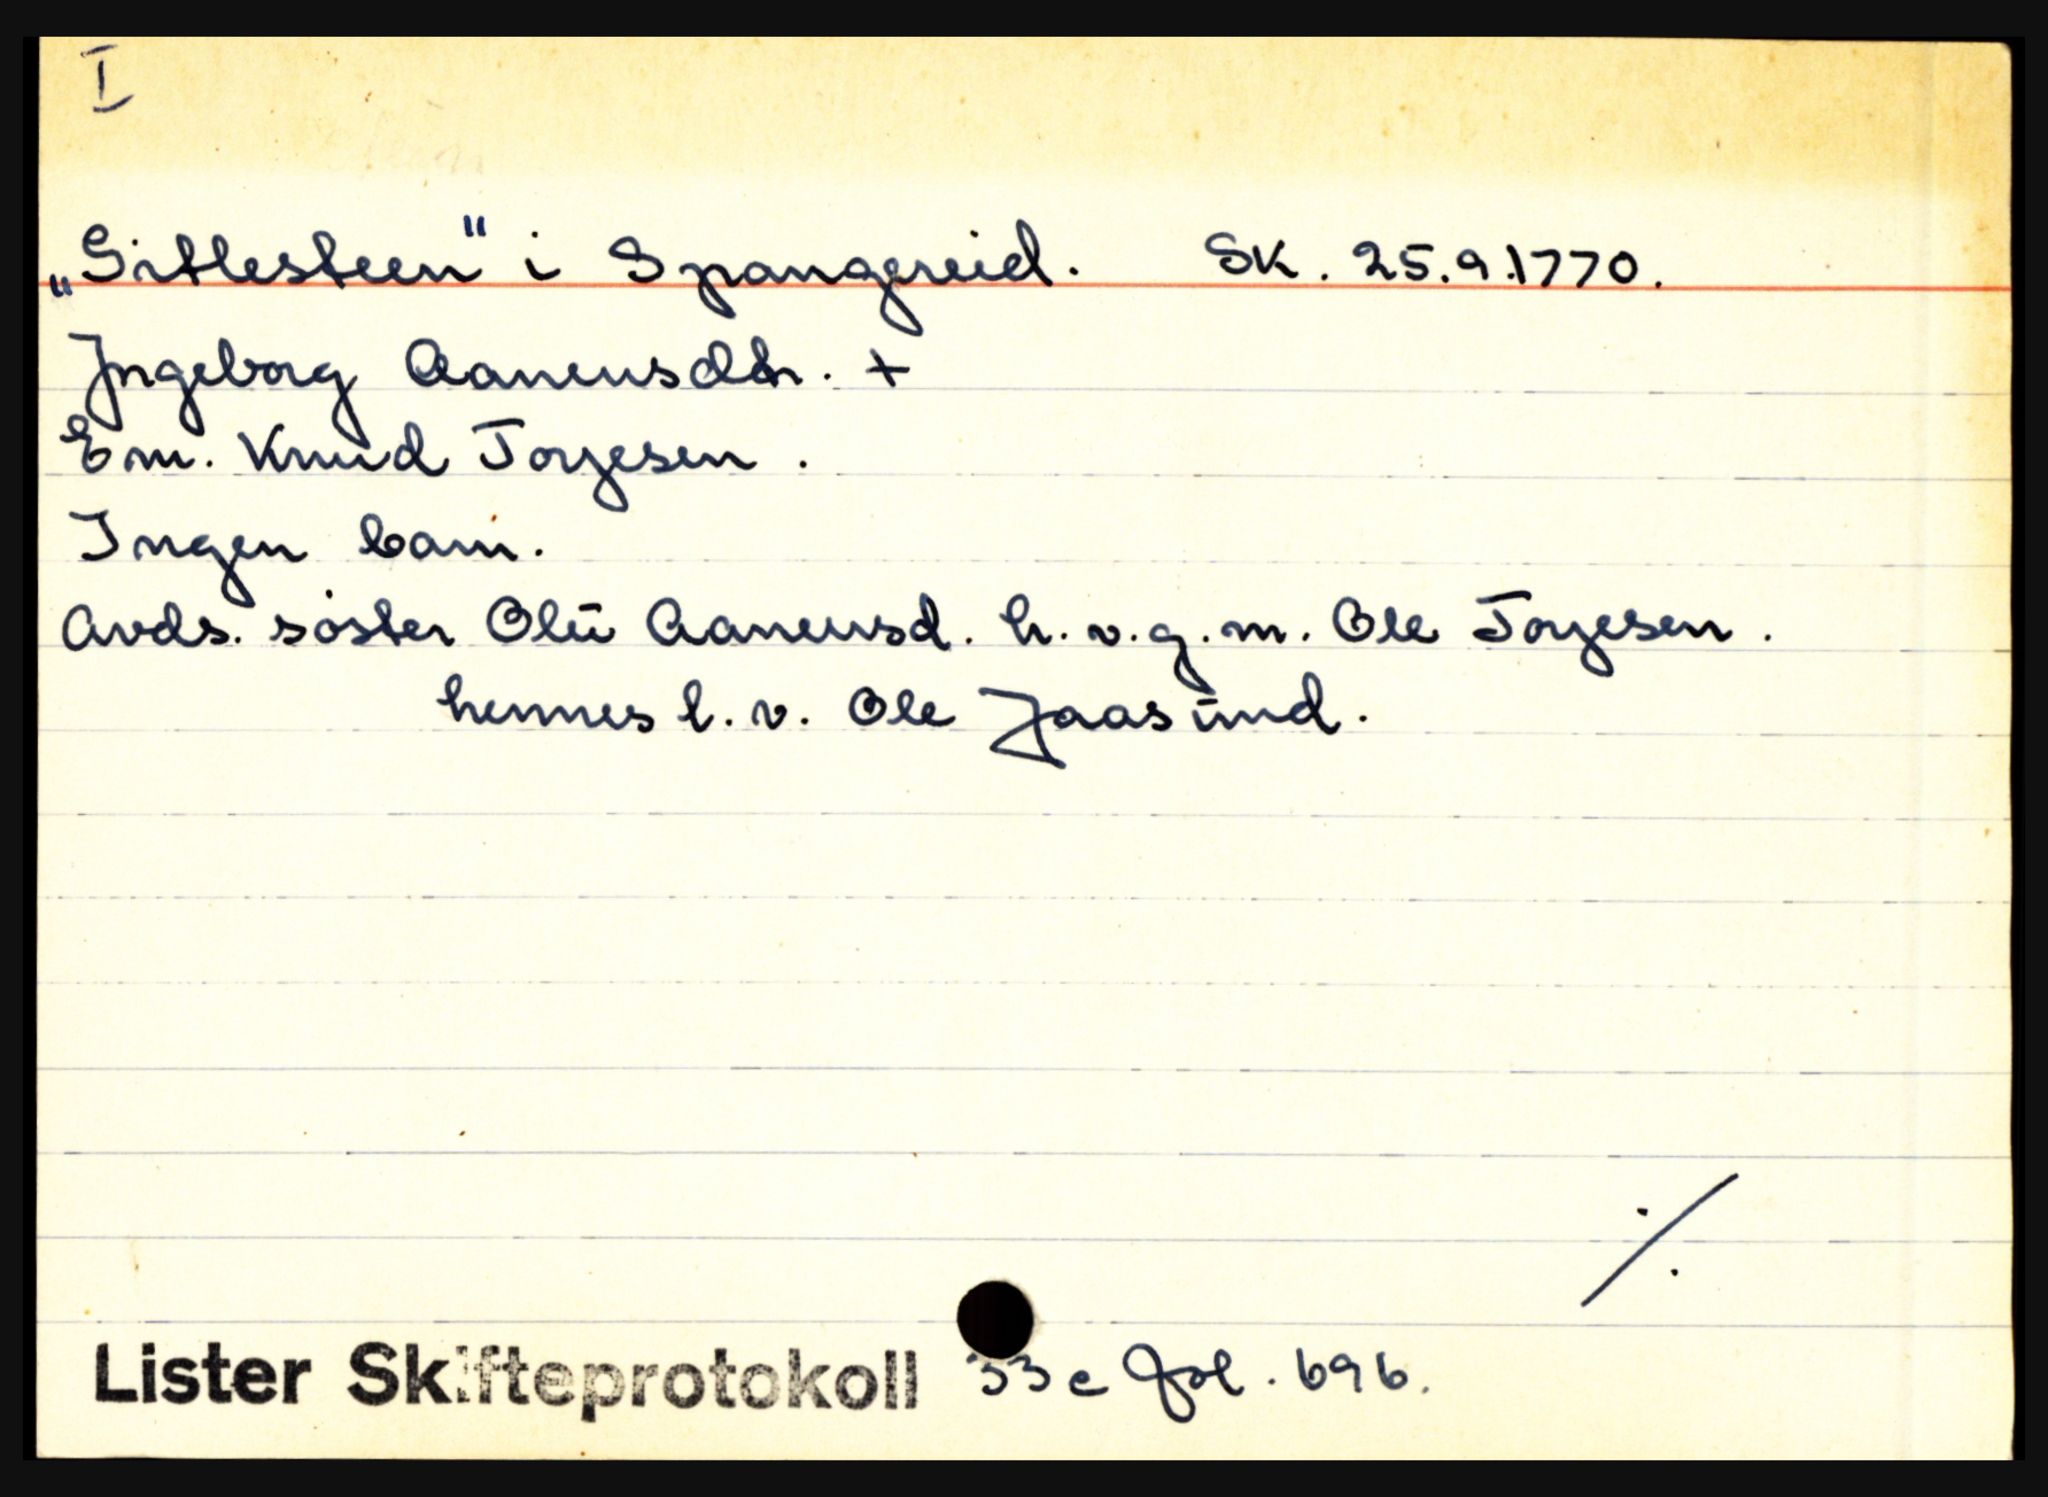 I
„Sittesteen" i Spangereid. SK. 25.9.1770.
Jngeborg Aanensdtr. +
Em. Knud Torjesen.
Ingen barn.
Avds. søster Olū Aanensd. h.v.g.m. Ole Torjesen.
hennes l.v. Ole Jaasūnd.
./.
Lister Skifteprotokoll 33c fol. 696.